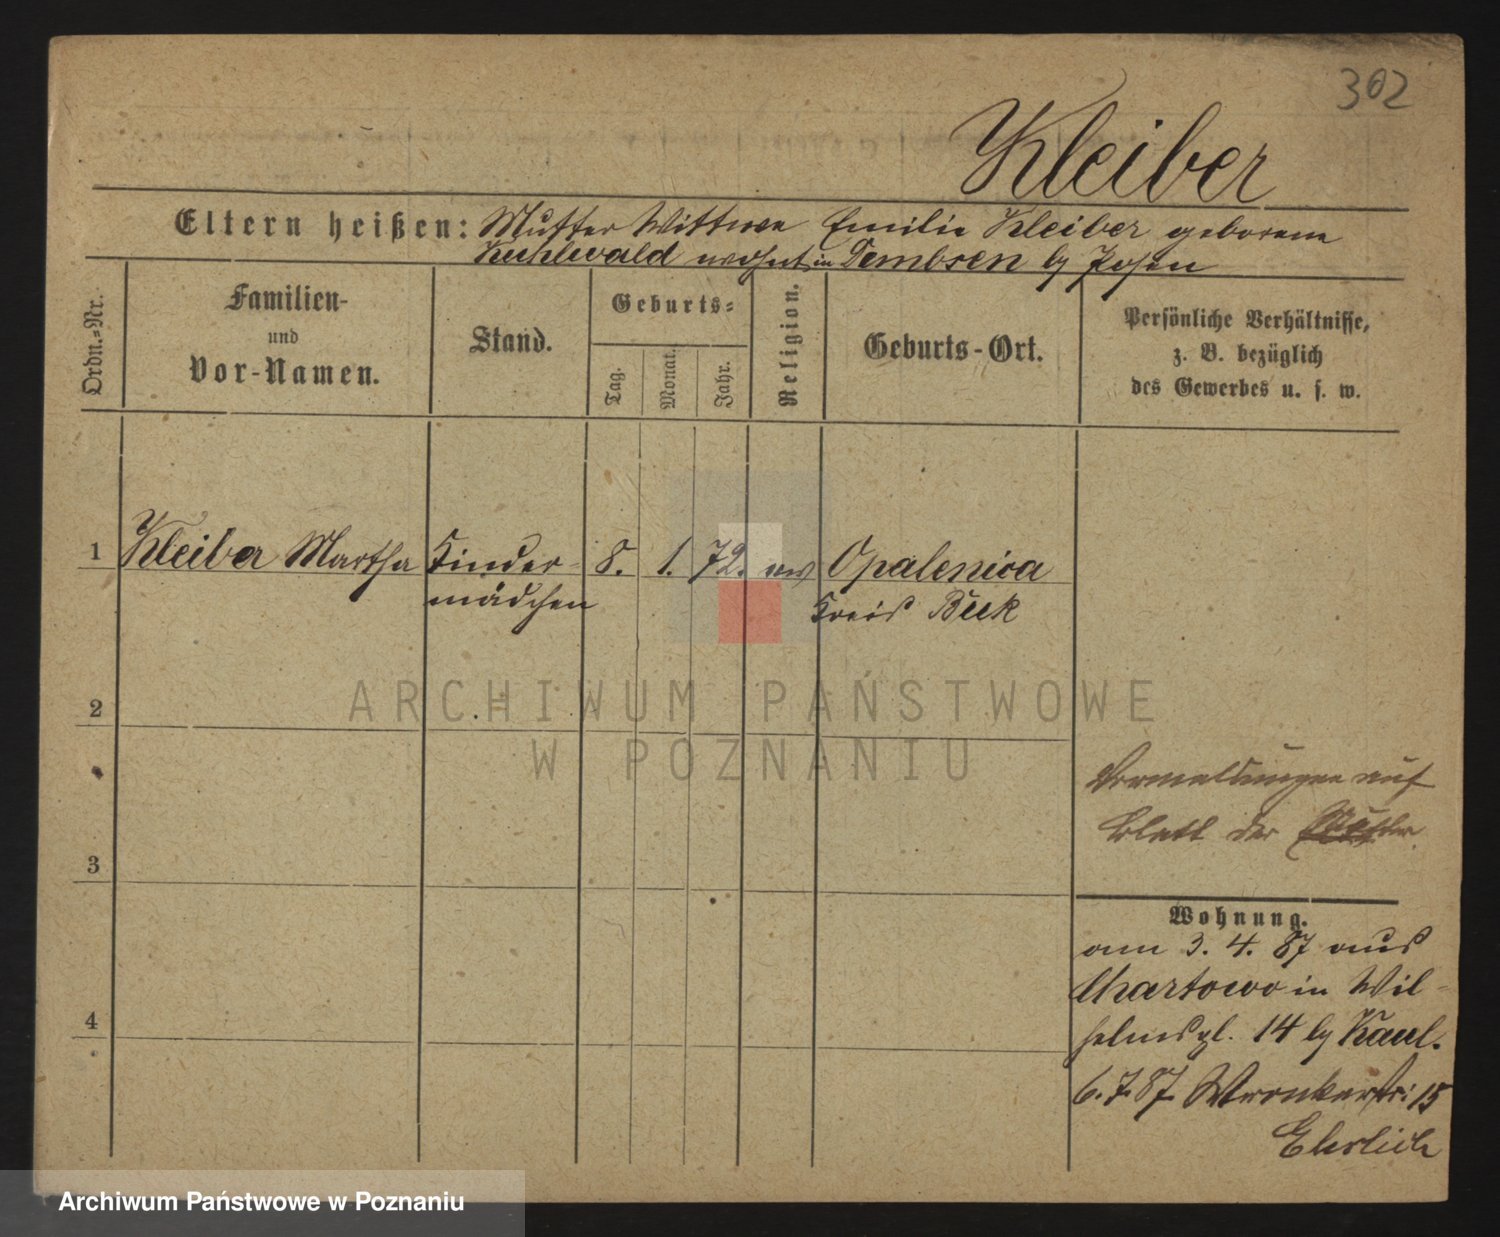 302
Kleiber
Eltern heißen: Mutter Wittwe Emilie Kleiber geborene
Kuhlwald wohnt in Dembsen bg Posen
Ordn.=Nr.
Familien-
und
Vor-Namen.
Stand.
Geburts=
Tag.
Monat.
Jahr.
Religion.
Geburts-Ort.
Persönliche Verhältnisse,
z. B. bezüglich
des Gewerbes u. s. w.
1 Kleiber Martha Kinder- 8. 1. 72. ev Opalenica
mädchen Kreis Buk
2
3
4
Vermeldungen auf
Blatt der Mutter.
Wohnung.
am 3. 4. 87 aus
Chartowo in Wil-
helmspl. 14 bg Kaul.
6. 7. 87. Wronkerstr: 15
Ehrlich
ARCHIWUM PAŃSTWOWE
W POZNANIU
Archiwum Państwowe w Poznaniu